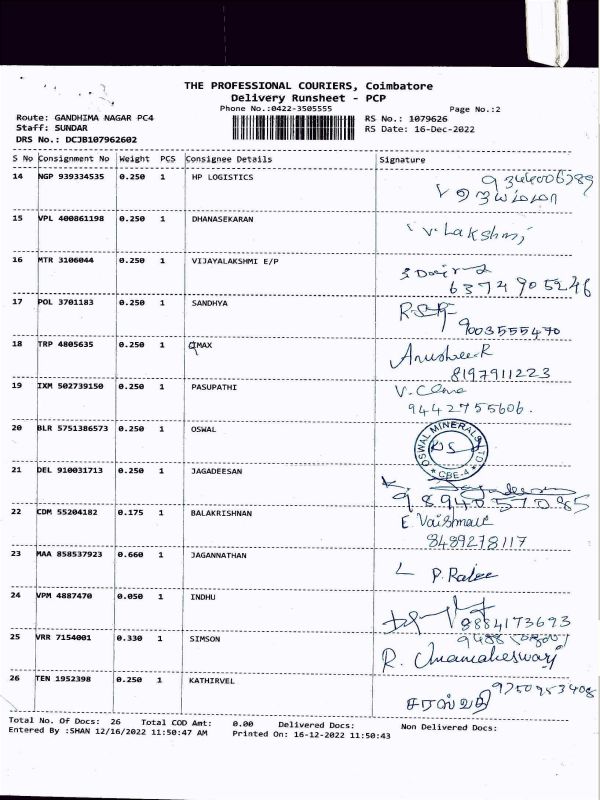 THE PROFESSIONAL COURIERS, Coimbatore
Delivery Runsheet - PCP
Phone No.:0422-3505555
Page No.:2
Route: GANDHIMA NAGAR PC4
RS No.: 1079626
Staff: SUNDAR
RS Date: 16-Dec-2022
DRS No.: DCJB107962602
S No Consignment No Weight PCS Consignee Details Signature
14 NGP 939334535 0.250 1 HP LOGISTICS
15 VPL 400861198 0.250 1 DHANASEKARAN V. Lakshmi
16 MTR 3106044 0.250 1 VIJAYALAKSHMI E/P
6374905246
17 POL 3701183 0.250 1 SANDHYA
9003555470
18 TRP 4805635 0.250 1 QMAX Anushree R
8197911223
19 IXM 502739150 0.250 1 PASUPATHI
9442755606.
20 BLR 5751386573 0.250 1 OSWAL OSWAL MINERALS LTD CBE-4
21 DEL 910031713 0.250 1 JAGADEESAN
9894057085
22 CDM 55204182 0.175 1 BALAKRISHNAN
8489278117
23 MAA 858537923 0.660 1 JAGANNATHAN
24 VPM 4887470 0.050 1 INDHU
9884173693
25 VRR 7154001 0.330 1 SIMSON R. Umamaheswari
26 TEN 1952398 0.250 1 KATHIRVEL 9750953408
சரஸ்வதி
Total No. Of Docs: 26 Total COD Amt: 0.00 Delivered Docs: Non Delivered Docs:
Entered By :SHAN 12/16/2022 11:50:47 AM Printed On: 16-12-2022 11:50:43